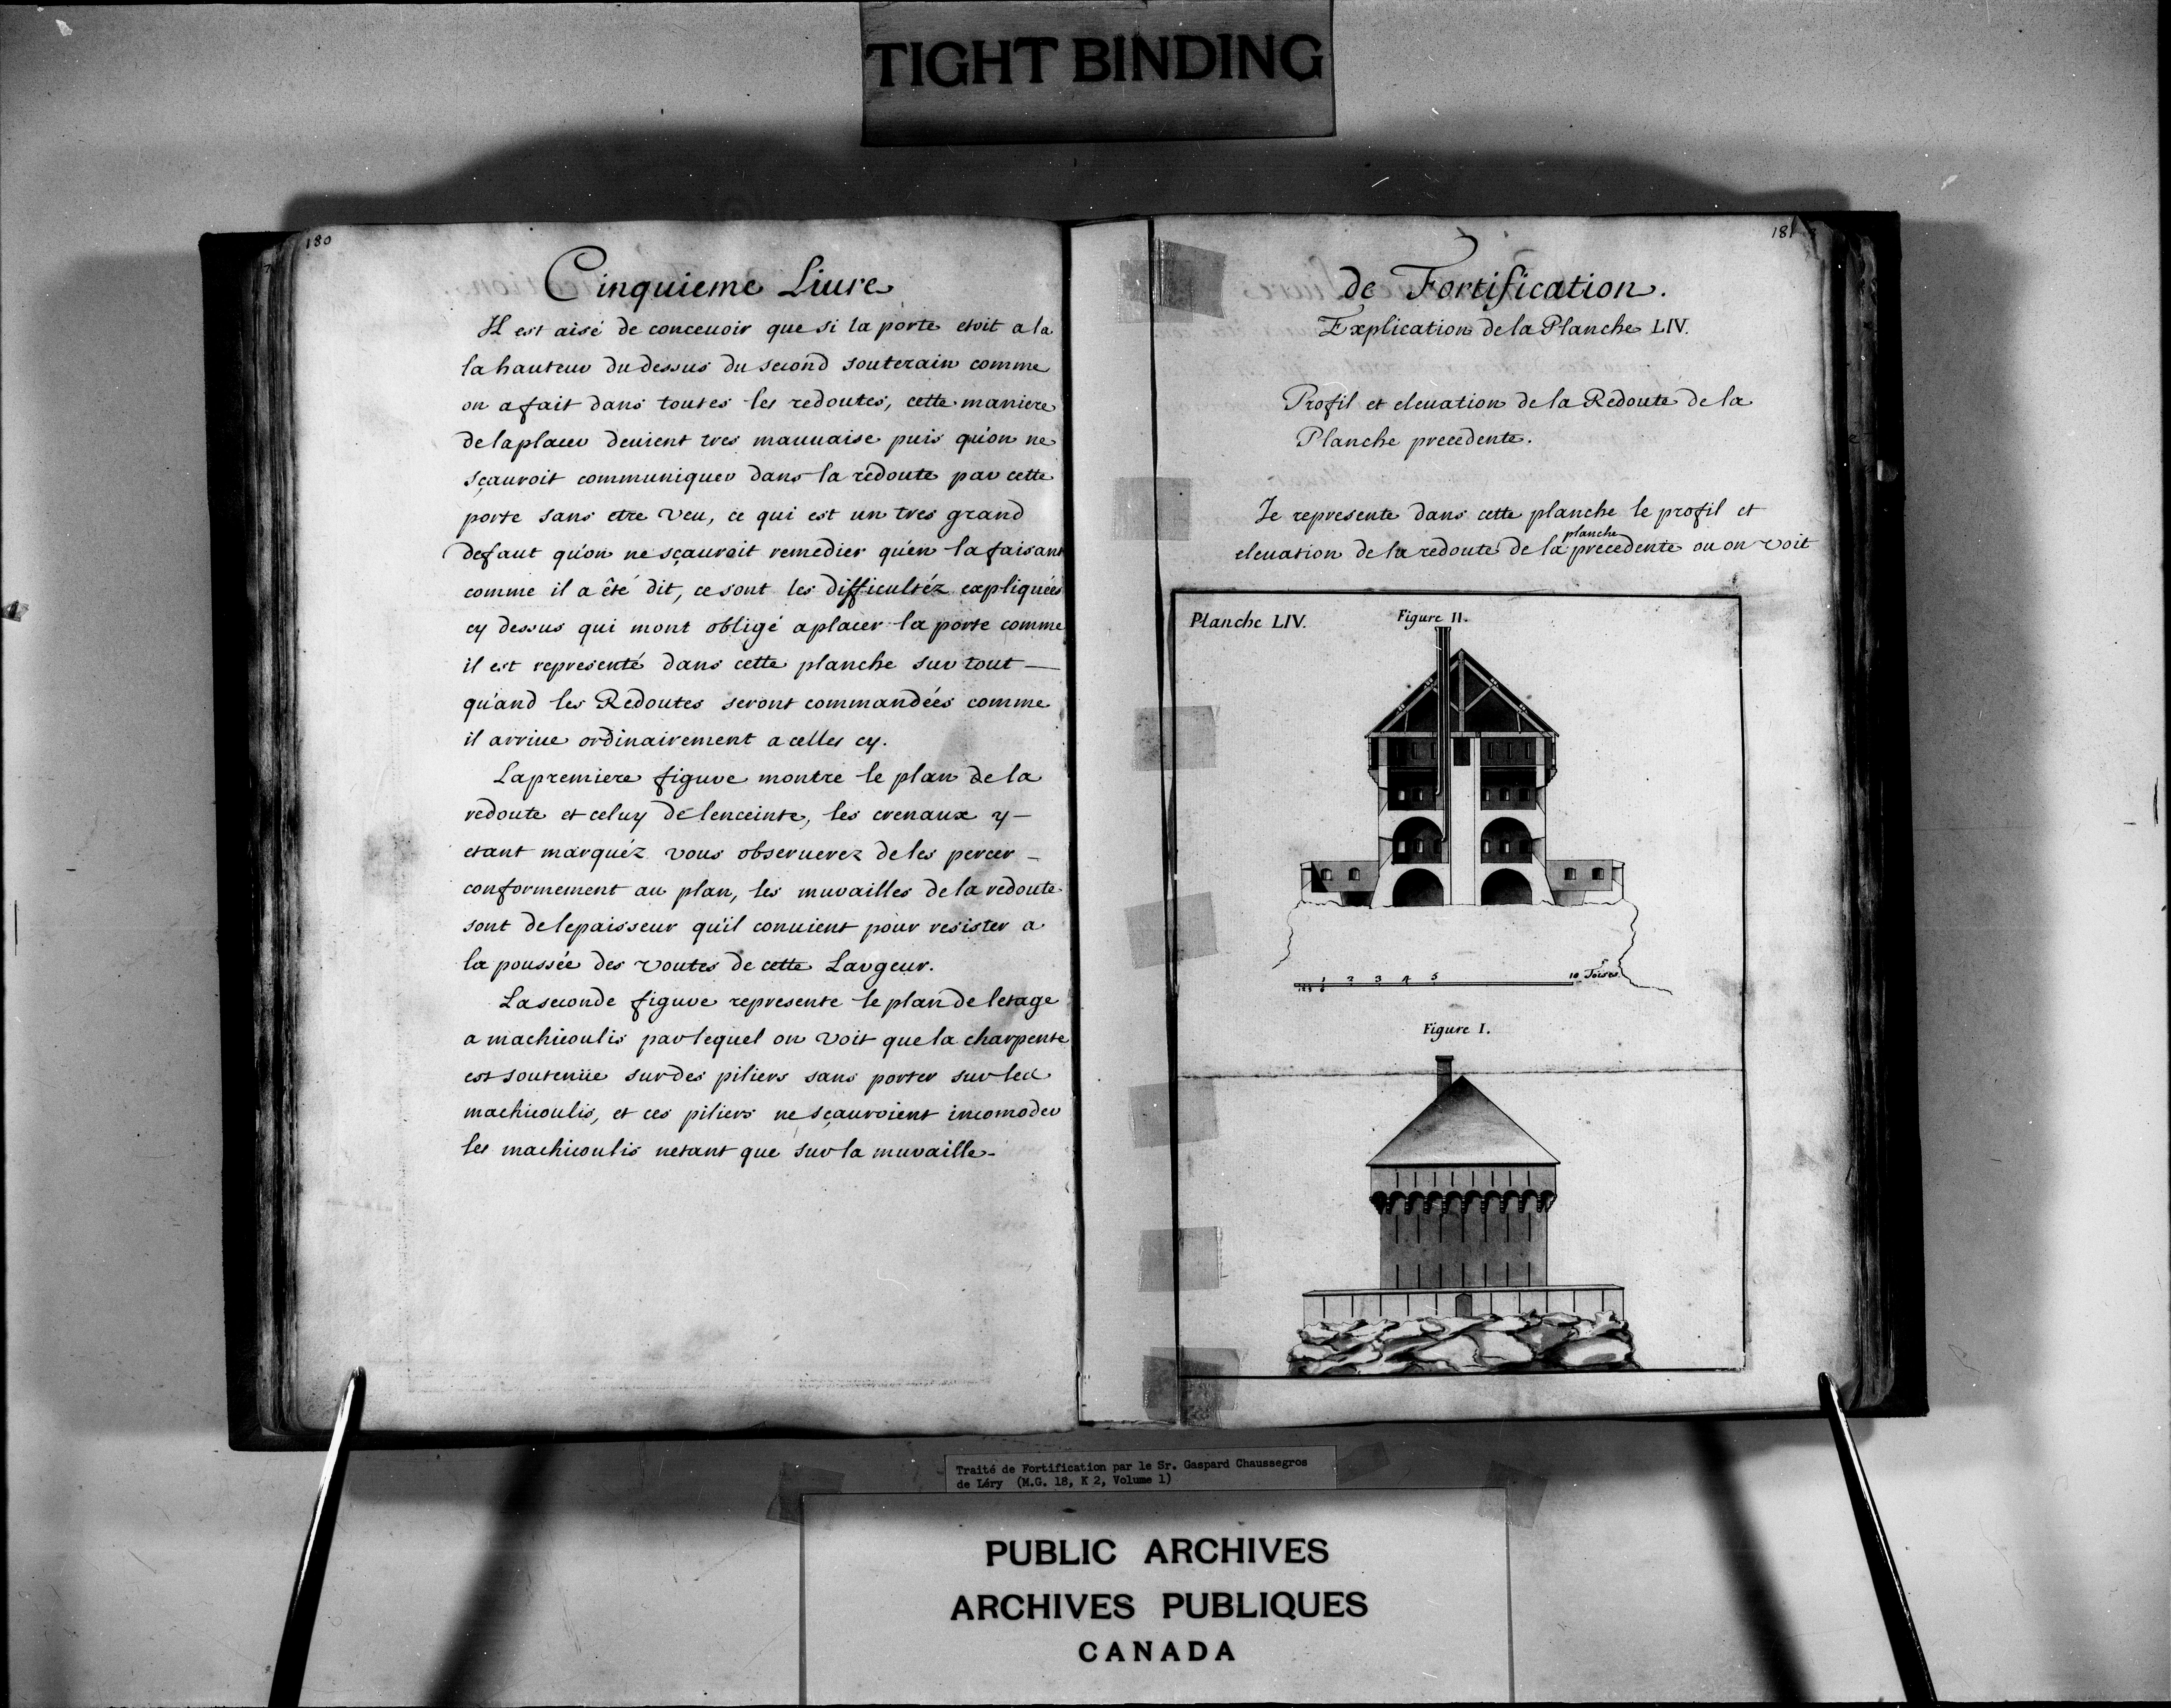 TIGHT BINDING
180
Cinquieme Liure
Il est aisé de conceuoir que si la porte etoit a la
la hauteur du dessus du second souterain comme
on a fait dans toutes les redoutes, cette maniere
de la placer deuient tres mauuaise puis qu'on ne
sçauroit communiquer dans la redoute par cette
porte sans etre veu, ce qui est un tres grand
defaut qu'on ne sçauroit remedier qu'en la faisant
comme il a été dit, ce sont les difficultéz expliquées
cy dessus qui mont obligé a placer la porte comme
il est representé dans cette planche sur tout —
qu'and les Redoutes seront commandées comme
il arriue ordinairement a celles cy.
La premiere figure montre le plan de la
redoute et celuy de lenceinte, les crenaux y —
etant marquéz vous obseruerez de les percer —
conformement au plan, les murailles de la redoute
sont de lepaisseur qu'il conuient pour resister a
la poussée des voutes de cette Largeur.
La seconde figure represente le plan de letage
a machicoulis par lequel on voit que la charpente
est soutenüe sur des piliers sans porter sur les
machicoulis, et ces piliers ne sçauroient incomoder
les machicoulis netant que sur la muraille -
181
de Fortification.
Explication de la Planche LIV.
Profil et eleuation de la Redoute de la
Planche precedente.
Je represente dans cette planche le profil et
eleuation de la redoute de la planche precedente ou on voit
Planche LIV.
Figure II.
1 2 3 4 5 10 Toises
Figure I.
Traité de Fortification par le Sr. Gaspard Chaussegros
de Léry (M.G. 18, K 2, Volume 1)
PUBLIC ARCHIVES
ARCHIVES PUBLIQUES
CANADA